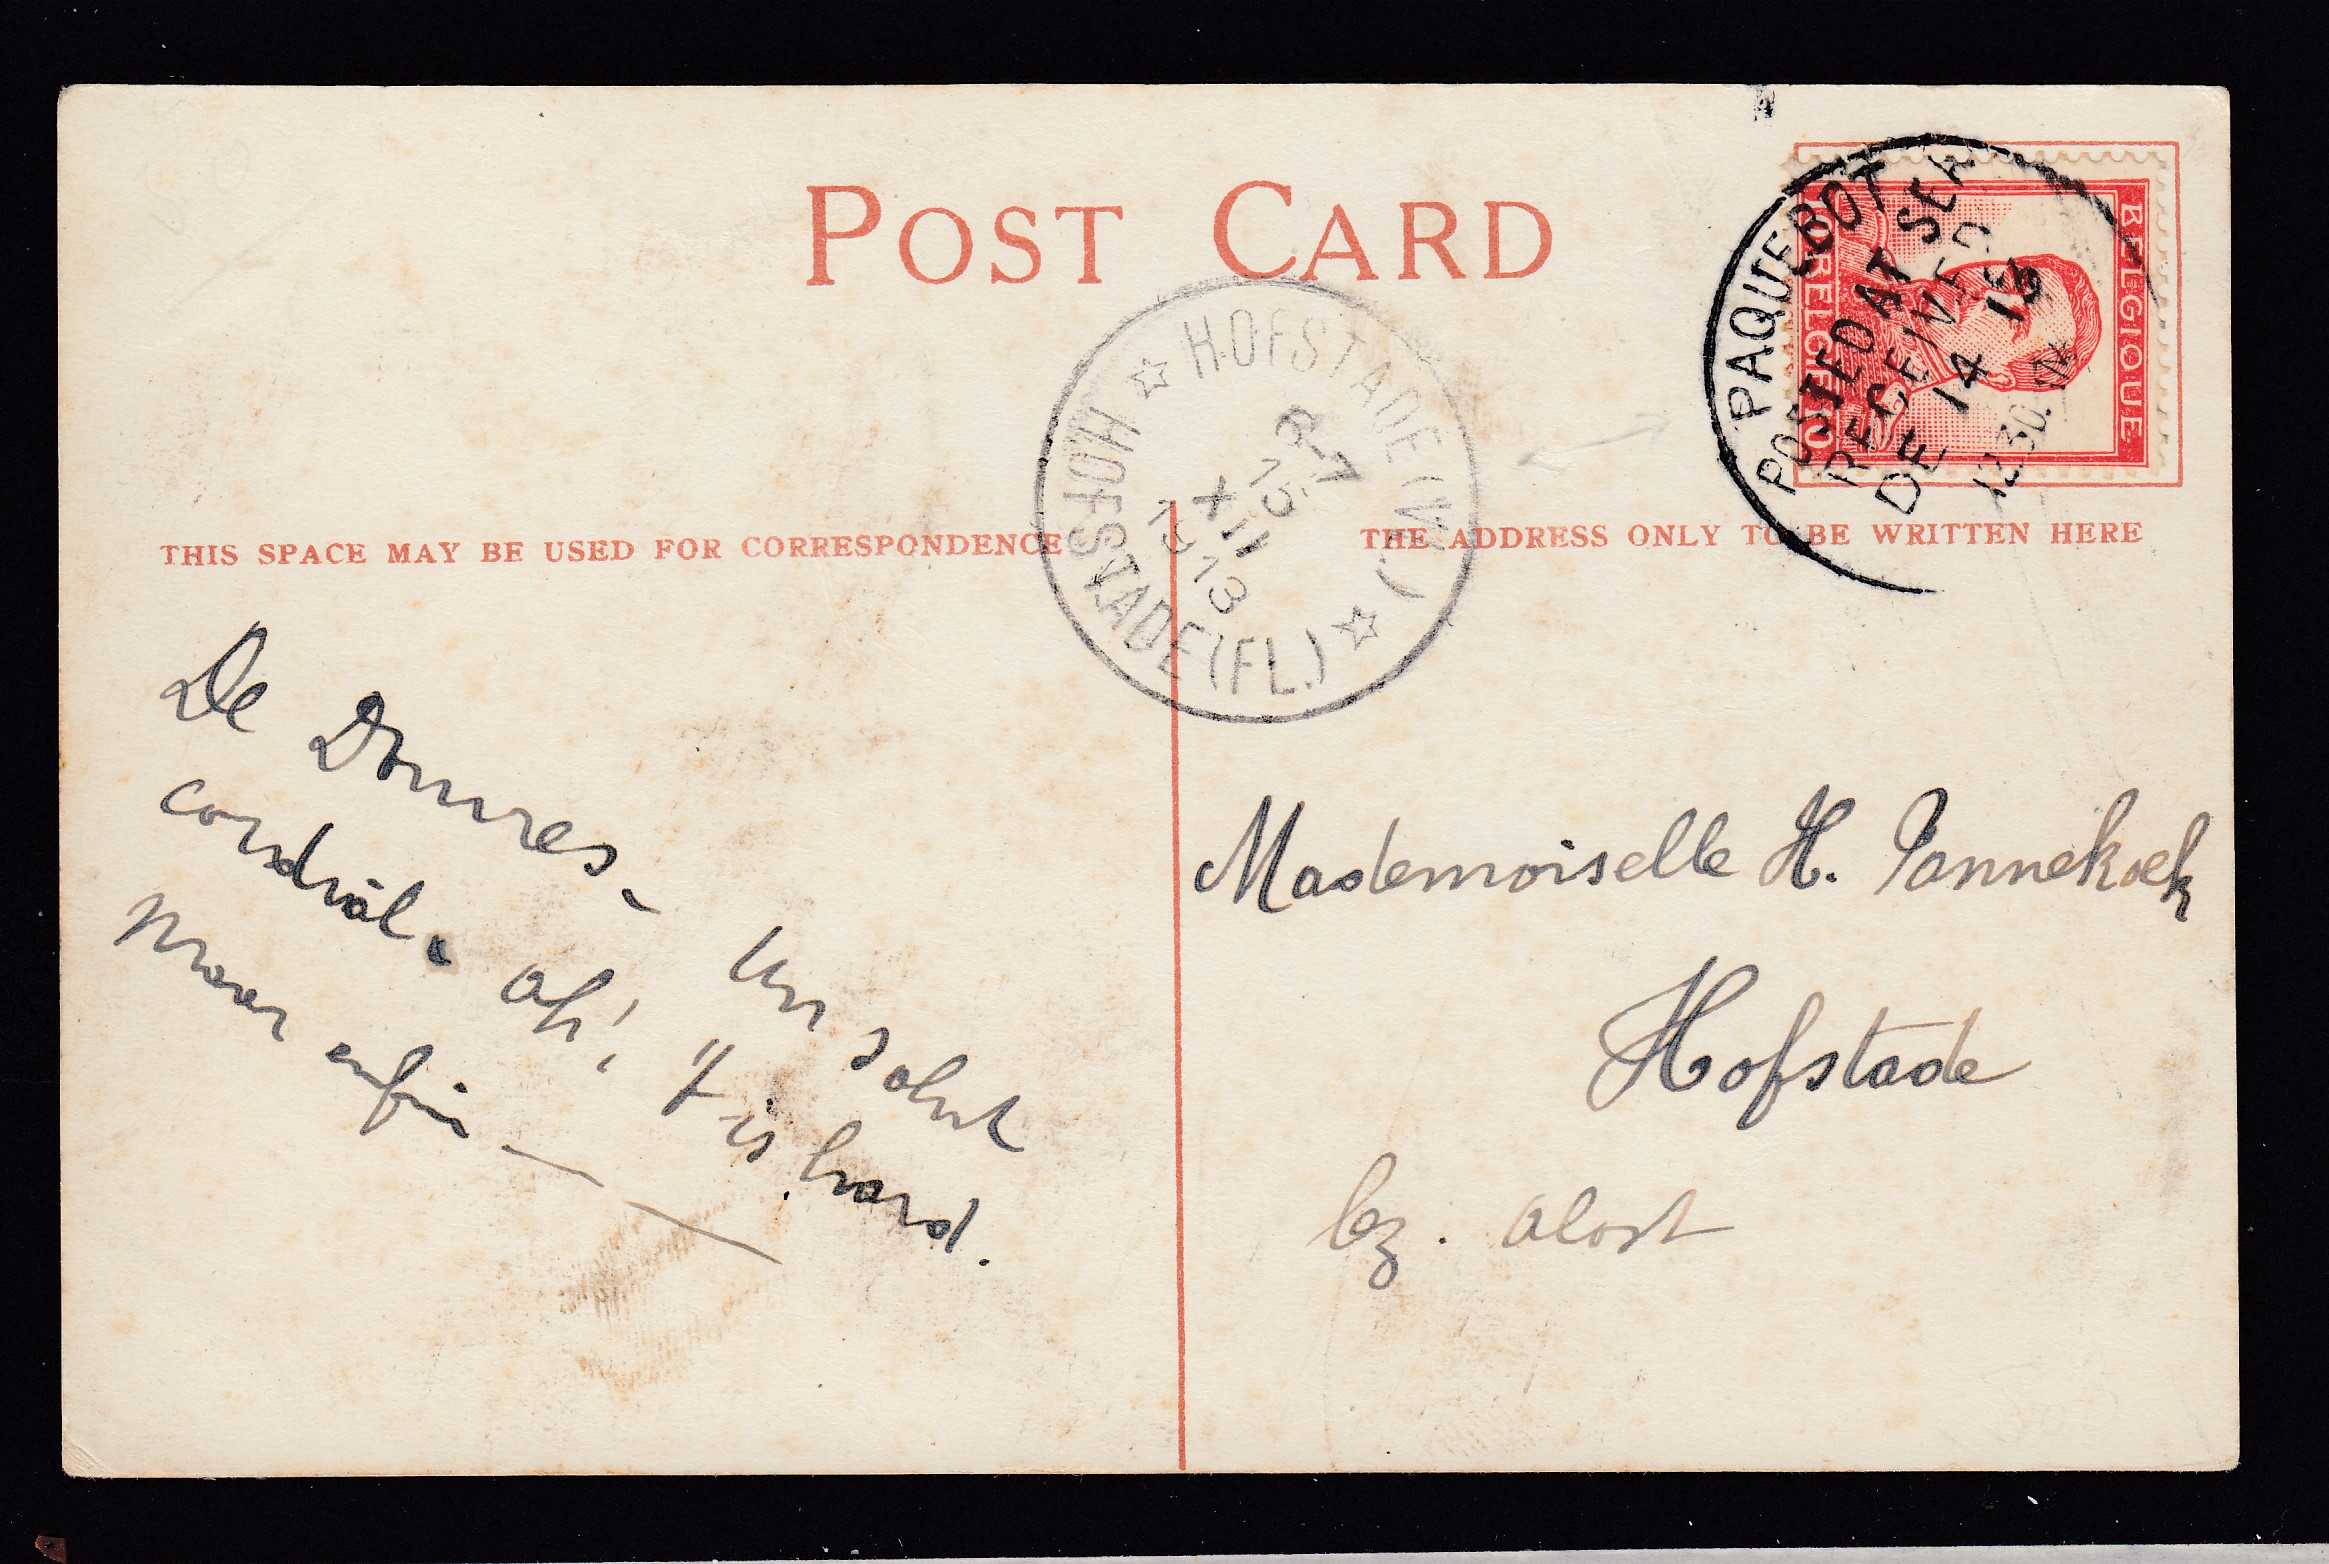 POST CARD
PAQUEBOT
POSTED AT SEA
RECEIVED
DE 14 13
12.30
BELGIQUE
10 BELGIE 10
HOFSTADE (
HOFSTADE (FL.)
15
XII
1913
THIS SPACE MAY BE USED FOR CORRESPONDENCE
THE ADDRESS ONLY TO BE WRITTEN HERE
De Douvres - Un salut
cordial. Ah! 't is hard.
Maar enfin —
Mademoiselle H. Pannekoek
Hofstade
lez. Alost